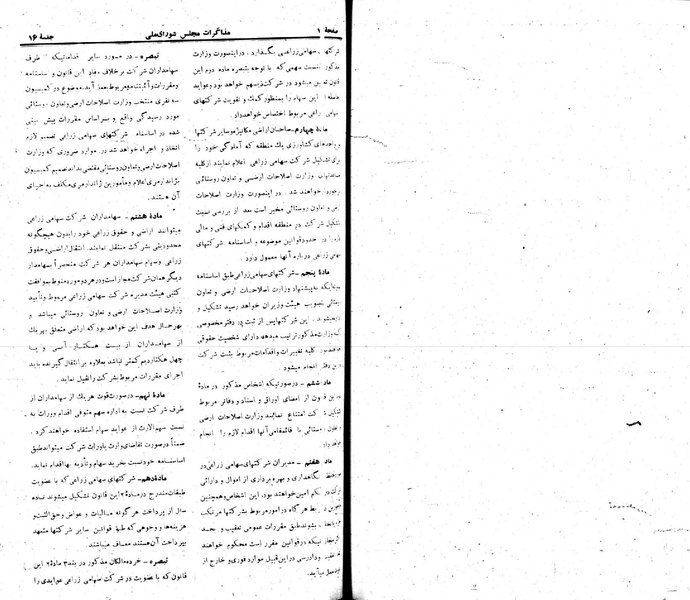 صفحهٔ ۱
مذاکرات مجلس شورایملی
جلسهٔ ۱۶
شرکتهای سهامی زراعی بگذارد. در اینصورت وزارت
مذکور بنسبت سهمی که با توجه بتبصره ماده دوم این
قانون تعیین میشود در شرکت ذیسهم خواهد بود و عواید
این سهام را بمنظور کمک و تقویت شرکتهای
سهامی زراعی مربوط اختصاص خواهد داد.
مادهٔ چهارم- صاحبان اراضی مکانیزه و سایر شرکتها
و واحدهای کشاورزی یک منطقه که آمادگی خود را
برای تشکیل شرکت سهامی زراعی اعلام نمایند از کلیه
مساعدتهای وزارت اصلاحات ارضی و تعاون روستائی
برخوردار خواهند شد. در اینصورت وزارت اصلاحات
ارضی و تعاون روستائی مخیر است بعد از بررسی نسبت
به تشکیل شرکت در منطقه اقدام و کمکهای فنی و مالی
لازم را در حدود قوانین موضوعه و اساسنامه شرکتهای
سهامی زراعی درباره آنها معمول دارد.
مادهٔ پنجم- شرکتهای سهامی زراعی طبق اساسنامه
نمونه‌ایکه به پیشنهاد وزارت اصلاحات ارضی و تعاون
روستائی بتصویب هیئت وزیران خواهد رسید تشکیل و
اداره میشوند. این شرکتها پس از ثبت در دفتر مخصوصی
که وزارت مذکور ترتیب میدهد دارای شخصیت حقوقی
کلیه تغییرات و اقدامات مربوط بثبت شرکت
در این دفتر انجام میشود
ماده ششم - در صورتیکه اشخاص مذکور در مادهٔ
این قانون از امضای اوراق و اسناد و دفاتر مربوط
به تشکیل شرکت امتناع نمایند وزارت اصلاحات ارضی
و تعاون روستائی با قائمقامی آنها اقدام لازم را انجام
خواهد داد
ماده هفتم - مدیران شرکتهای سهامی زراعی در
حفظ و نگاهداری و بهره‌برداری از اموال و دارائی
شرکت در حکم امین خواهند بود. این اشخاص و همچنین
هر گاه در امور مربوط بشرکتها مرتکب
بشوند طبق مقررات عمومی تعقیب و بحد
اکثر مجازاتیکه در قوانین مقرر است محکوم خواهند
شد و دادرسی در این قبیل موارد فوری و خارج از
نوبت بعمل میآید.
تبصره- در مورد سایر اقداماتیکه از طرف
سهامداران شرکت برخلاف مفاد این قانون و اساسنامه
و مقررات و آئیننامه مربوط بعمل آید. موضوع در کمیسیون
سه نفری منتخب وزارت اصلاحات ارضی و تعاون روستائی
مورد رسیدگی واقع و بر اساس مقررات پیش بینی
شده در اساسنامه شرکتهای سهامی زراعی تصمیم لازم
اتخاذ و اجراء خواهد شد. در موارد ضروری که وزارت
اصلاحات ارضی و تعاون روستائی مقتضی بداند تصمیم کمیسیون
بژاندارمری اعلام و مأمورین ژاندارمری مکلف به اجرای
آن هستند.
مادهٔ هشتم- سهامداران شرکت سهامی زراعی
میتوانند اراضی و حقوق زراعی خود را بدون هیچگونه
محدودیتی بشرکت منتقل نمایند. انتقال اراضی و حقوق
زراعی و سهام سهامداران هر شرکت منحصراً بسهامدار
دیگر همان شرکت مجاز است و در هر دو مورد منوط بموافقت
کتبی هیئت مدیره شرکت سهامی زراعی مربوط و تأیید
وزارت اصلاحات ارضی و تعاون روستائی میباشد و
بهر حال هدف این خواهد بود که اراضی متعلق بهر یک
از سهامداران از بیست هکتار آبی و یا
چهل هکتار دیم کمتر نباشد بعلاوه بر انتقال گیرنده باید
اجرای مقررات مربوط بشرکت را تقبل نماید.
مادهٔ نهم- در صورت فوت هر یک از سهامداران از
طرف شرکت نسبت به اداره سهم متوفی اقدام و وراث به
نسبت سهم‌الارث از عواید سهام استفاده خواهند کرد.
ضمناً در صورت تقاضای وارث یا وراث شرکت میتواند طبق
اساسنامه خود نسبت بخرید سهام و تأدیه بها اقدام نماید.
مادهٔ دهم- شرکتهای سهامی زراعی که با عضویت
طبقات مندرج در مادهٔ ۲ این قانون تشکیل میشوند تا ده
سال از پرداخت هر گونه مالیات و عوارض و حق‌الثبت و
هزینه‌ها و وجوهی که طبق قوانین سایر شرکتها متعهد
بپرداخت آن هستند معاف میباشند.
تبصره- خرده مالکان مذکور در بند ۳ مادهٔ ۲ این
قانون که با عضویت در شرکت سهامی زراعی عوایدی را